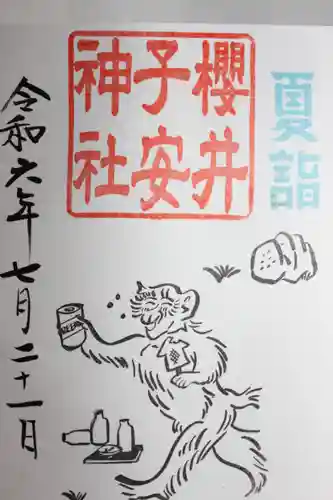 夏詣
櫻井
子安
神社
令和六年七月二十一日